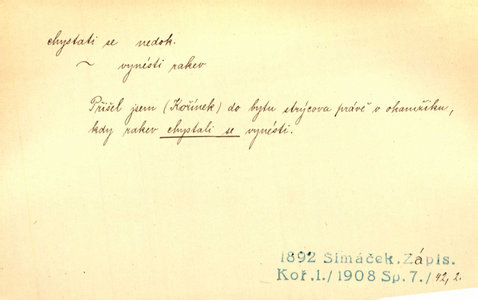 chystati se nedok.
~ vynésti rakev
Přišel jsem (Kořínek) do bytu strýcova právě v okamžiku,
kdy rakev chystali se vynésti.
1892 Šimáček. Zápis.
Koř. I./1908 Sp. 7./42, 2.